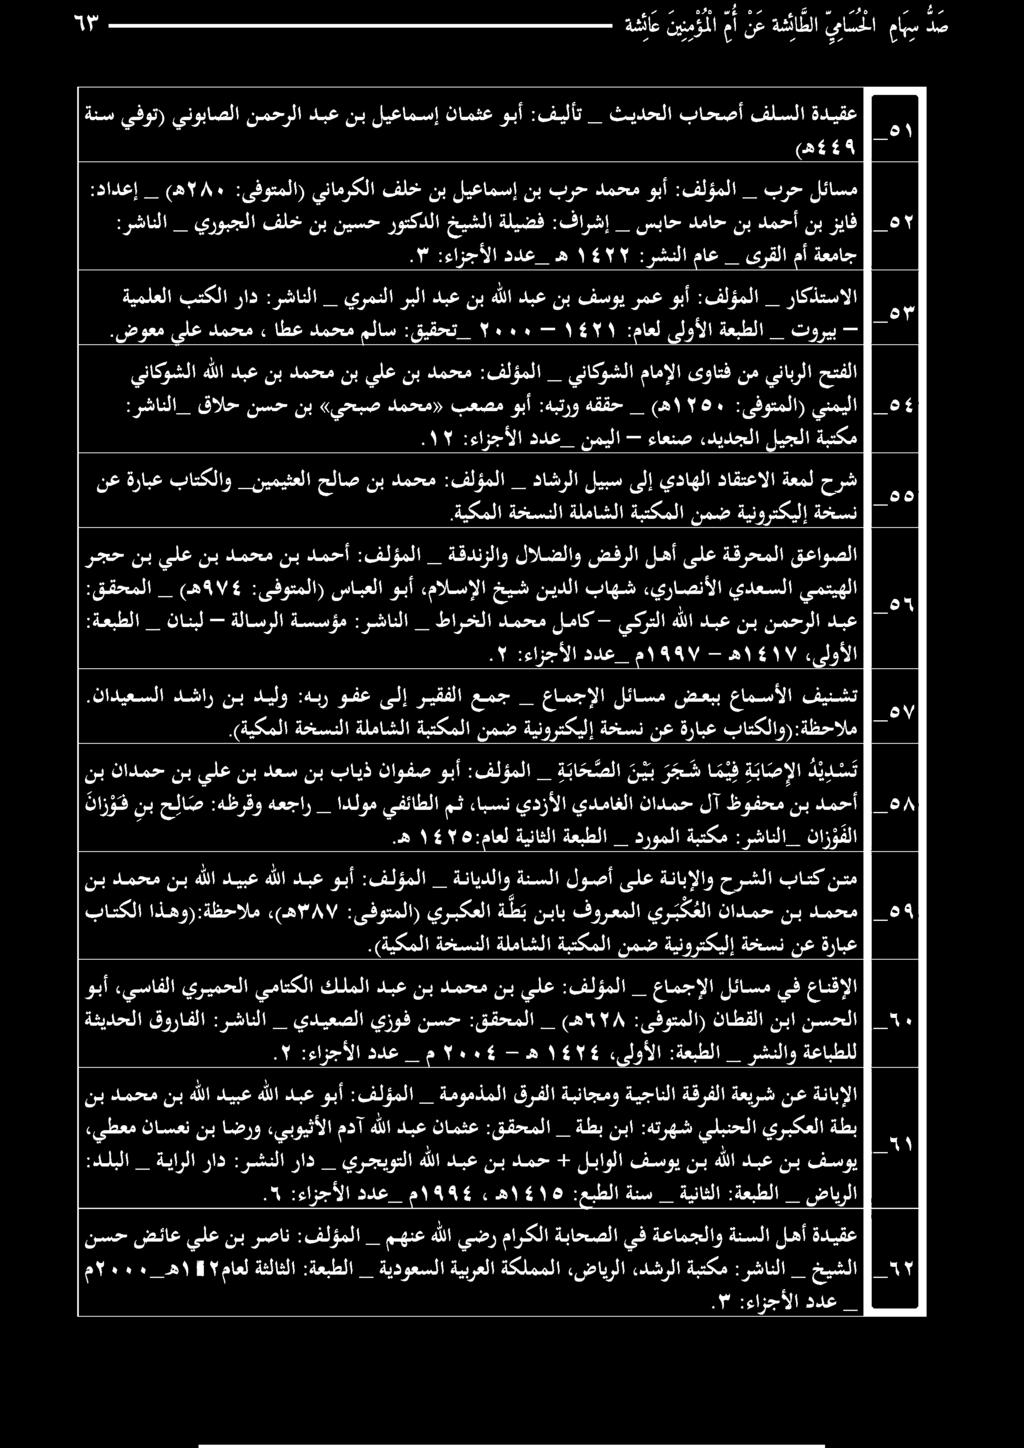 صَدُّ سِهَامِ الْحُسَامِيِّ الطَّائِشة عَنْ أُمِّ الْمُؤْمِنِينَ عَائِشة ٦٣
٥١_ عقيدة السلف أصحاب الحديث _ تأليف: أبو عثمان إسماعيل بن عبد الرحمن الصابوني (توفي سنة
٤٤٩هـ)
مسائل حرب _ المؤلف: أبو محمد حرب بن إسماعيل بن خلف الكرماني (المتوفى: ٢٨٠هـ) _ إعداد:
٥٢_ فايز بن أحمد بن حامد حابس _ إشراف: فضيلة الشيخ الدكتور حسين بن خلف الجبوري _ الناشر:
جامعة أم القرى _ عام النشر: ١٤٢٢ هـ _عدد الأجزاء: ٣.
٥٣_ الاستذكار _ المؤلف: أبو عمر يوسف بن عبد الله بن عبد البر النمري _ الناشر: دار الكتب العلمية
– بيروت _ الطبعة الأولى لعام: ١٤٢١ – ٢٠٠٠ _تحقيق: سالم محمد عطا ، محمد علي معوض.
الفتح الرباني من فتاوى الإمام الشوكاني _ المؤلف: محمد بن علي بن محمد بن عبد الله الشوكاني
٥٤_ اليمني (المتوفى: ١٢٥٠هـ) _ حققه ورتبه: أبو مصعب «محمد صبحي» بن حسن حلاق _الناشر:
مكتبة الجيل الجديد، صنعاء – اليمن _عدد الأجزاء: ١٢.
٥٥_ شرح لمعة الاعتقاد الهادي إلى سبيل الرشاد _ المؤلف: محمد بن صالح العثيمين_ والكتاب عبارة عن
نسخة إليكترونية ضمن المكتبة الشاملة النسخة المكية.
الصواعق المحرقة على أهل الرفض والضلال والزندقة _ المؤلف: أحمد بن محمد بن علي بن حجر
٥٦_ الهيتمي السعدي الأنصاري، شهاب الدين شيخ الإسلام، أبو العباس (المتوفى: ٩٧٤هـ) _ المحقق:
عبد الرحمن بن عبد الله التركي - كامل محمد الخراط _ الناشر: مؤسسة الرسالة – لبنان _ الطبعة:
الأولى، ١٤١٧هـ - ١٩٩٧م _عدد الأجزاء: ٢.
٥٧_ تشنيف الأسماع ببعض مسائل الإجماع _ جمع الفقير إلى عفو ربه: وليد بن راشد السعيدان.
ملاحظة:(والكتاب عبارة عن نسخة إليكترونية ضمن المكتبة الشاملة النسخة المكية).
تَسْدِيْدُ الإِصَابَةِ فِيْمَا شَجَرَ بَيْنَ الصَّحَابَةِ _ المؤلف: أبو صفوان ذياب بن سعد بن علي بن حمدان بن
٥٨_ أحمد بن محفوظ آل حمدان الغامدي الأزدي نسبا، ثم الطائفي مولدا _ راجعه وقرظه: صَالِح بنِ فَوْزانَ
الفَوْزان _الناشر: مكتبة المورد _ الطبعة الثانية لعام:١٤٢٥ هـ.
متن كتاب الشرح والإبانة على أصول السنة والديانة _ المؤلف: أبو عبد الله عبيد الله بن محمد بن
٥٩_ محمد بن حمدان العُكْبَري المعروف بابن بَطَّة العكبري (المتوفى: ٣٨٧هـ)، ملاحظة:(وهذا الكتاب
عبارة عن نسخة إليكترونية ضمن المكتبة الشاملة النسخة المكية).
الإقناع في مسائل الإجماع _ المؤلف: علي بن محمد بن عبد الملك الكتامي الحميري الفاسي، أبو
٦٠_ الحسن ابن القطان (المتوفى: ٦٢٨هـ) _ المحقق: حسن فوزي الصعيدي _ الناشر: الفاروق الحديثة
للطباعة والنشر _ الطبعة: الأولى، ١٤٢٤ هـ - ٢٠٠٤ م _ عدد الأجزاء: ٢.
الإبانة عن شريعة الفرقة الناجية ومجانبة الفرق المذمومة _ المؤلف: أبو عبد الله عبيد الله بن محمد بن
٦١_ بطة العكبري الحنبلي شهرته: ابن بطة _ المحقق: عثمان عبد الله آدم الأثيوبي، ورضا بن نعسان معطي،
يوسف بن عبد الله بن يوسف الوابل + حمد بن عبد الله التويجري _ دار النشر: دار الراية _ البلد:
الرياض _ الطبعة: الثانية _ سنة الطبع: ١٤١٥هـ ، ١٩٩٤م _عدد الأجزاء: ٦.
عقيدة أهل السنة والجماعة في الصحابة الكرام رضي الله عنهم _ المؤلف: ناصر بن علي عائض حسن
٦٢_ الشيخ _ الناشر: مكتبة الرشد، الرياض، المملكة العربية السعودية _ الطبعة: الثالثة لعام _٢٠٠٠م
_ عدد الأجزاء: ٣.